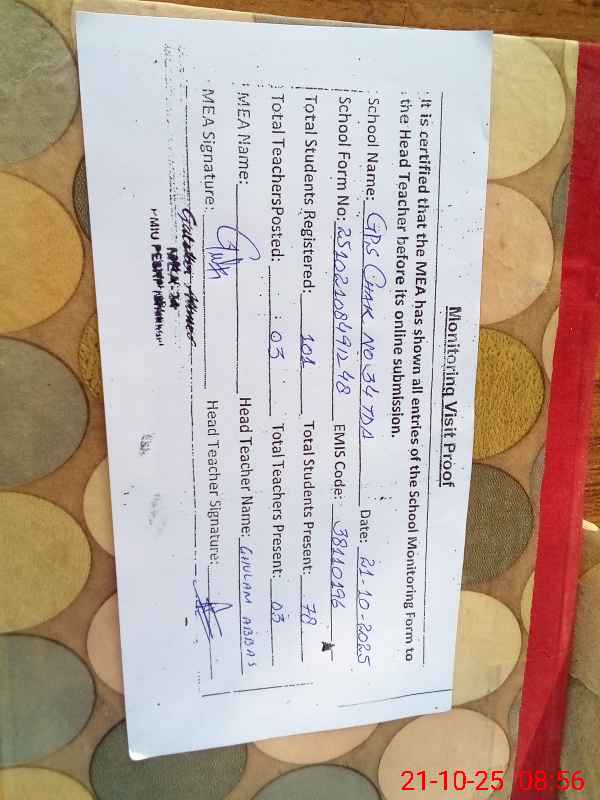 Monitoring Visit Proof
It is certified that the MEA has shown all entries of the School Monitoring Form to
the Head Teacher before its online submission.
School Name: GPS CHAK NO 34 TDA Date: 21-10-2025
School Form No: 2510210849248 EMIS Code: 38110196
Total Students Registered: 101 Total Students Present: 78
Total TeachersPosted: 03 Total Teachers Present: 03
MEA Name: Head Teacher Name: GHULAM ABBAS
MEA Signature: Head Teacher Signature:
21-10-25 08:56